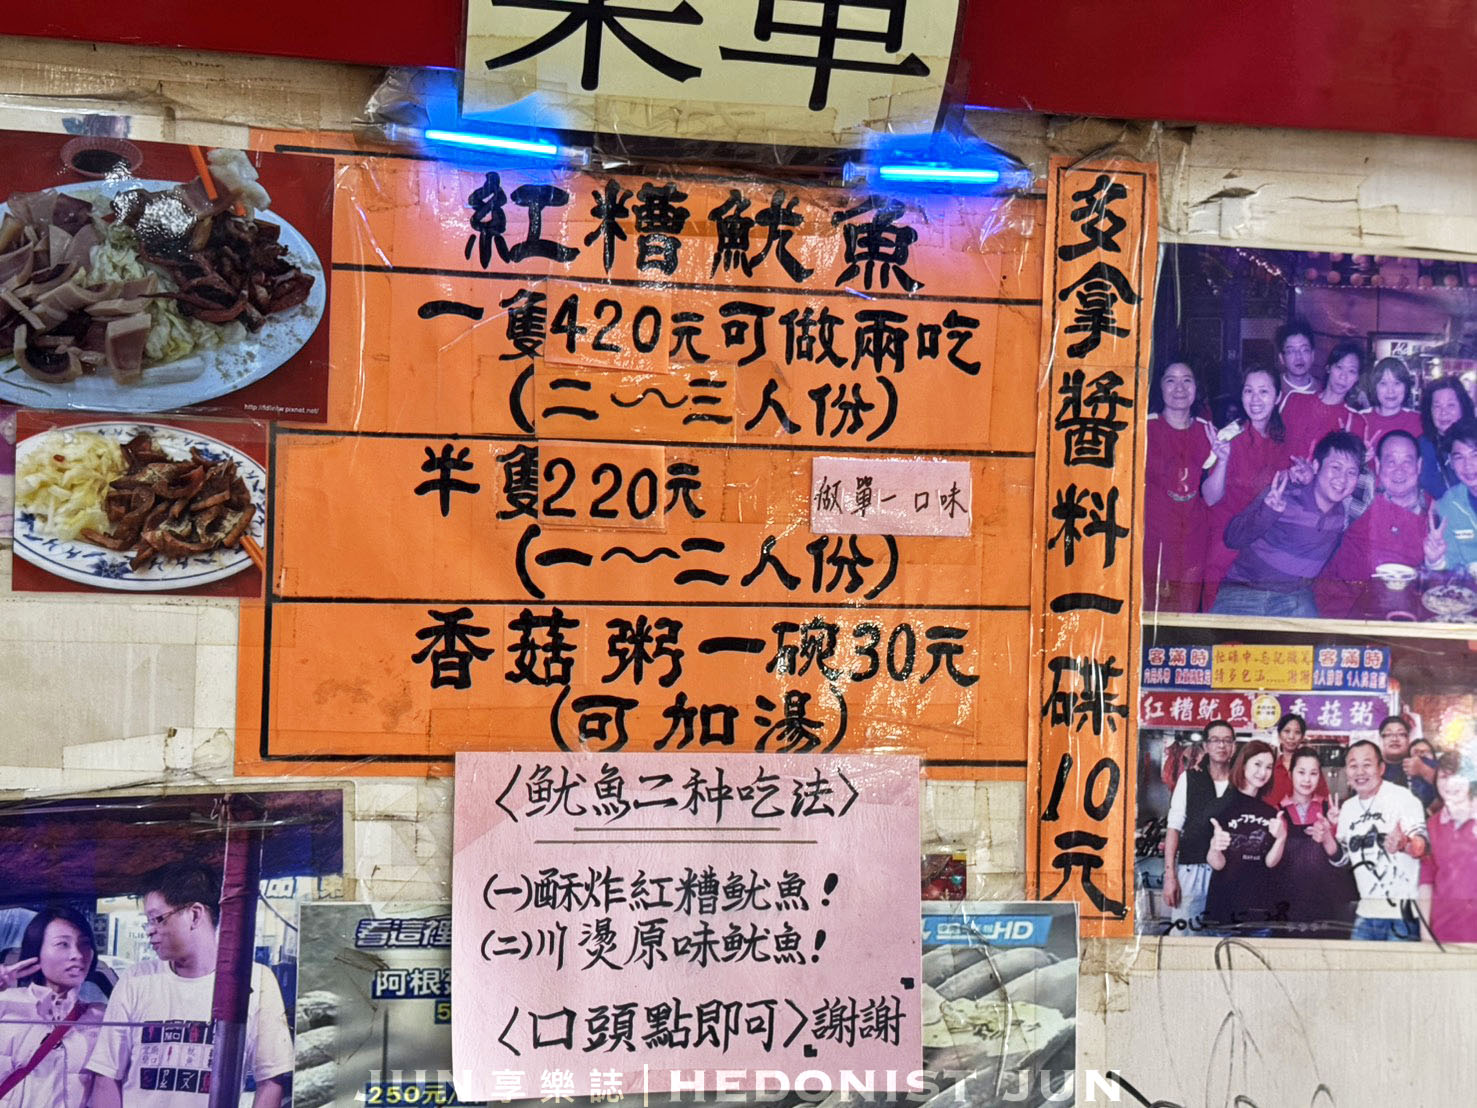 菜單
紅糟魷魚
一隻420元可做兩吃
(二～三人份)
半隻220元
做單一口味
(一～二人份)
香菇粥一碗30元
(可加湯)
多拿醬料一碟10元
〈魷魚二种吃法〉
(一)酥炸紅糟魷魚!
(二)川燙原味魷魚!
〈口頭點即可〉謝謝
http://fdintw.pixnet.net/
客滿時
客滿時
紅糟魷魚
香菇粥
看這裡
阿根
HD
250元/
JUN 享樂誌 | HEDONIST JUN